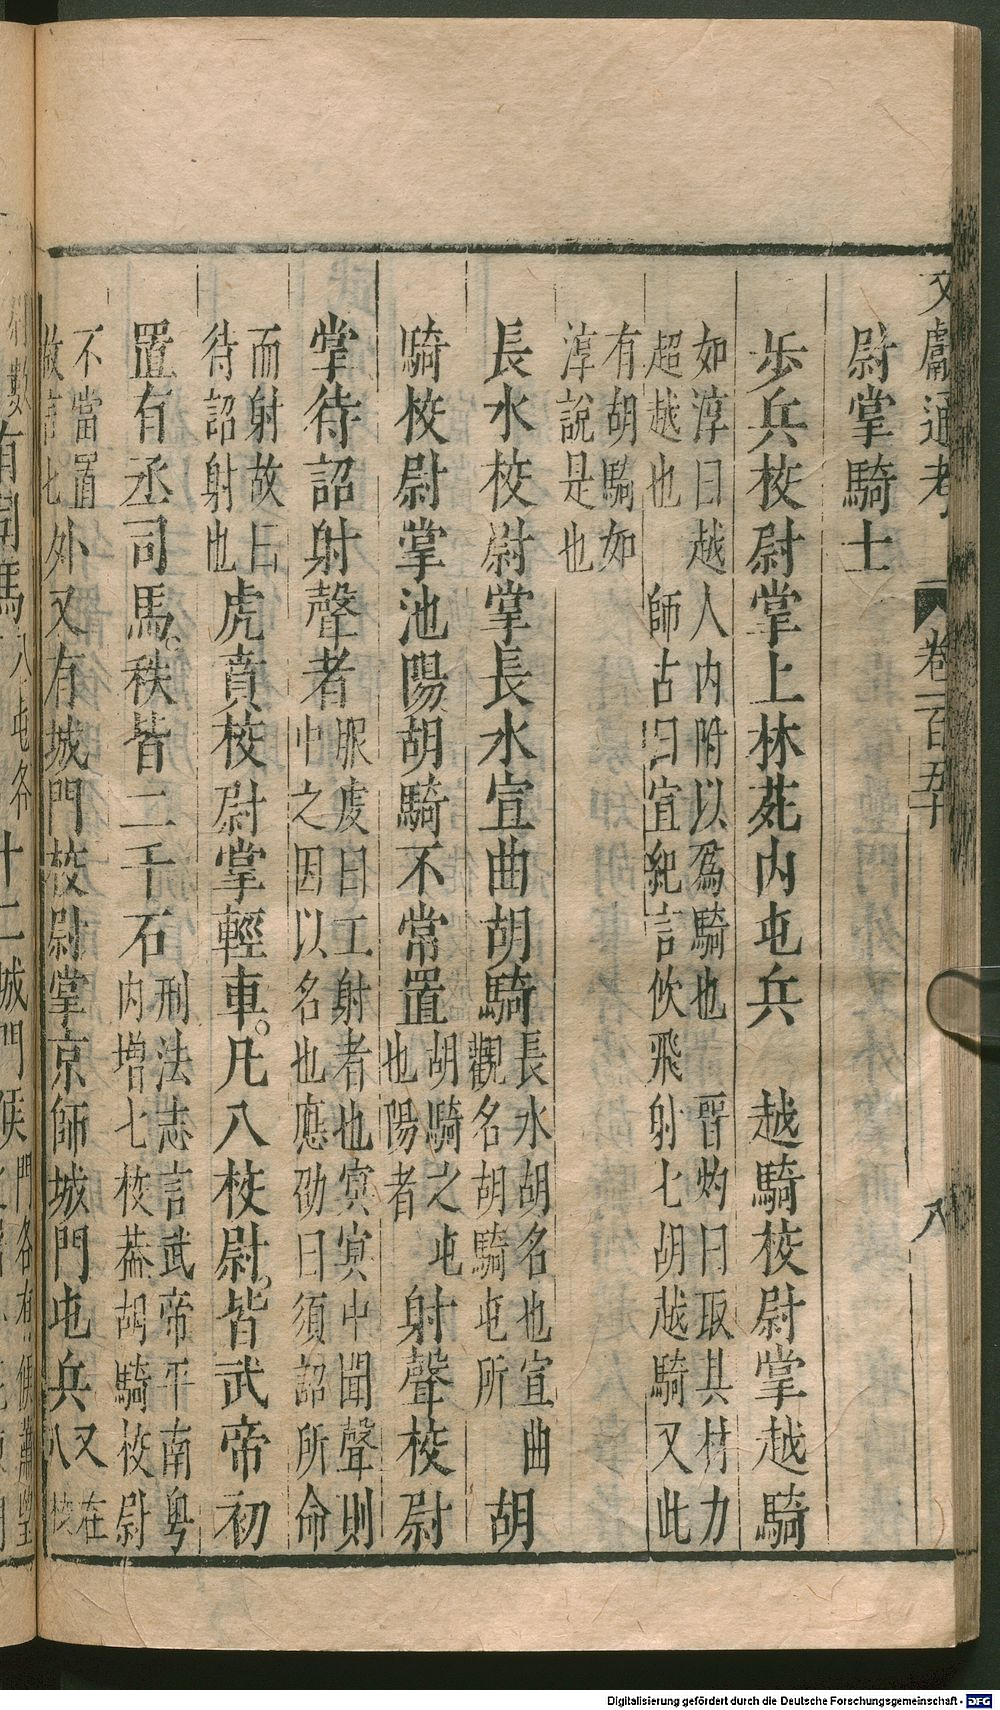 文獻通考 卷一百五十 八
尉掌騎士
步兵校尉掌上林苑内屯兵 越騎校尉掌越騎
如淳曰越人内附以爲騎也 晉灼曰取其材力
超越也 師古曰宜紀言佽飛射七胡越騎又此
有胡騎如
淳說是也
長水校尉掌長水宣曲胡騎
長水胡名也宣曲
觀名胡騎屯所
胡
騎校尉掌池陽胡騎不常置
胡騎之屯
也陽者
射聲校尉
掌待詔射聲者
服虔曰工射者也冥冥中聞聲則
中之因以名也應劭曰須詔所命
而射故曰
待詔射也
虎賁校尉掌輕車。凡八校尉。皆武帝初
置有丞司馬。秩皆二千石
刑法志言武帝平南粤
内增七校葢胡騎校尉
不當置
故言七
外又有城門校尉掌京師城門屯兵
又在
八校
八屯各
十二城門候
門各有候蕭望
Digitalisierung gefördert durch die Deutsche Forschungsgemeinschaft - DFG